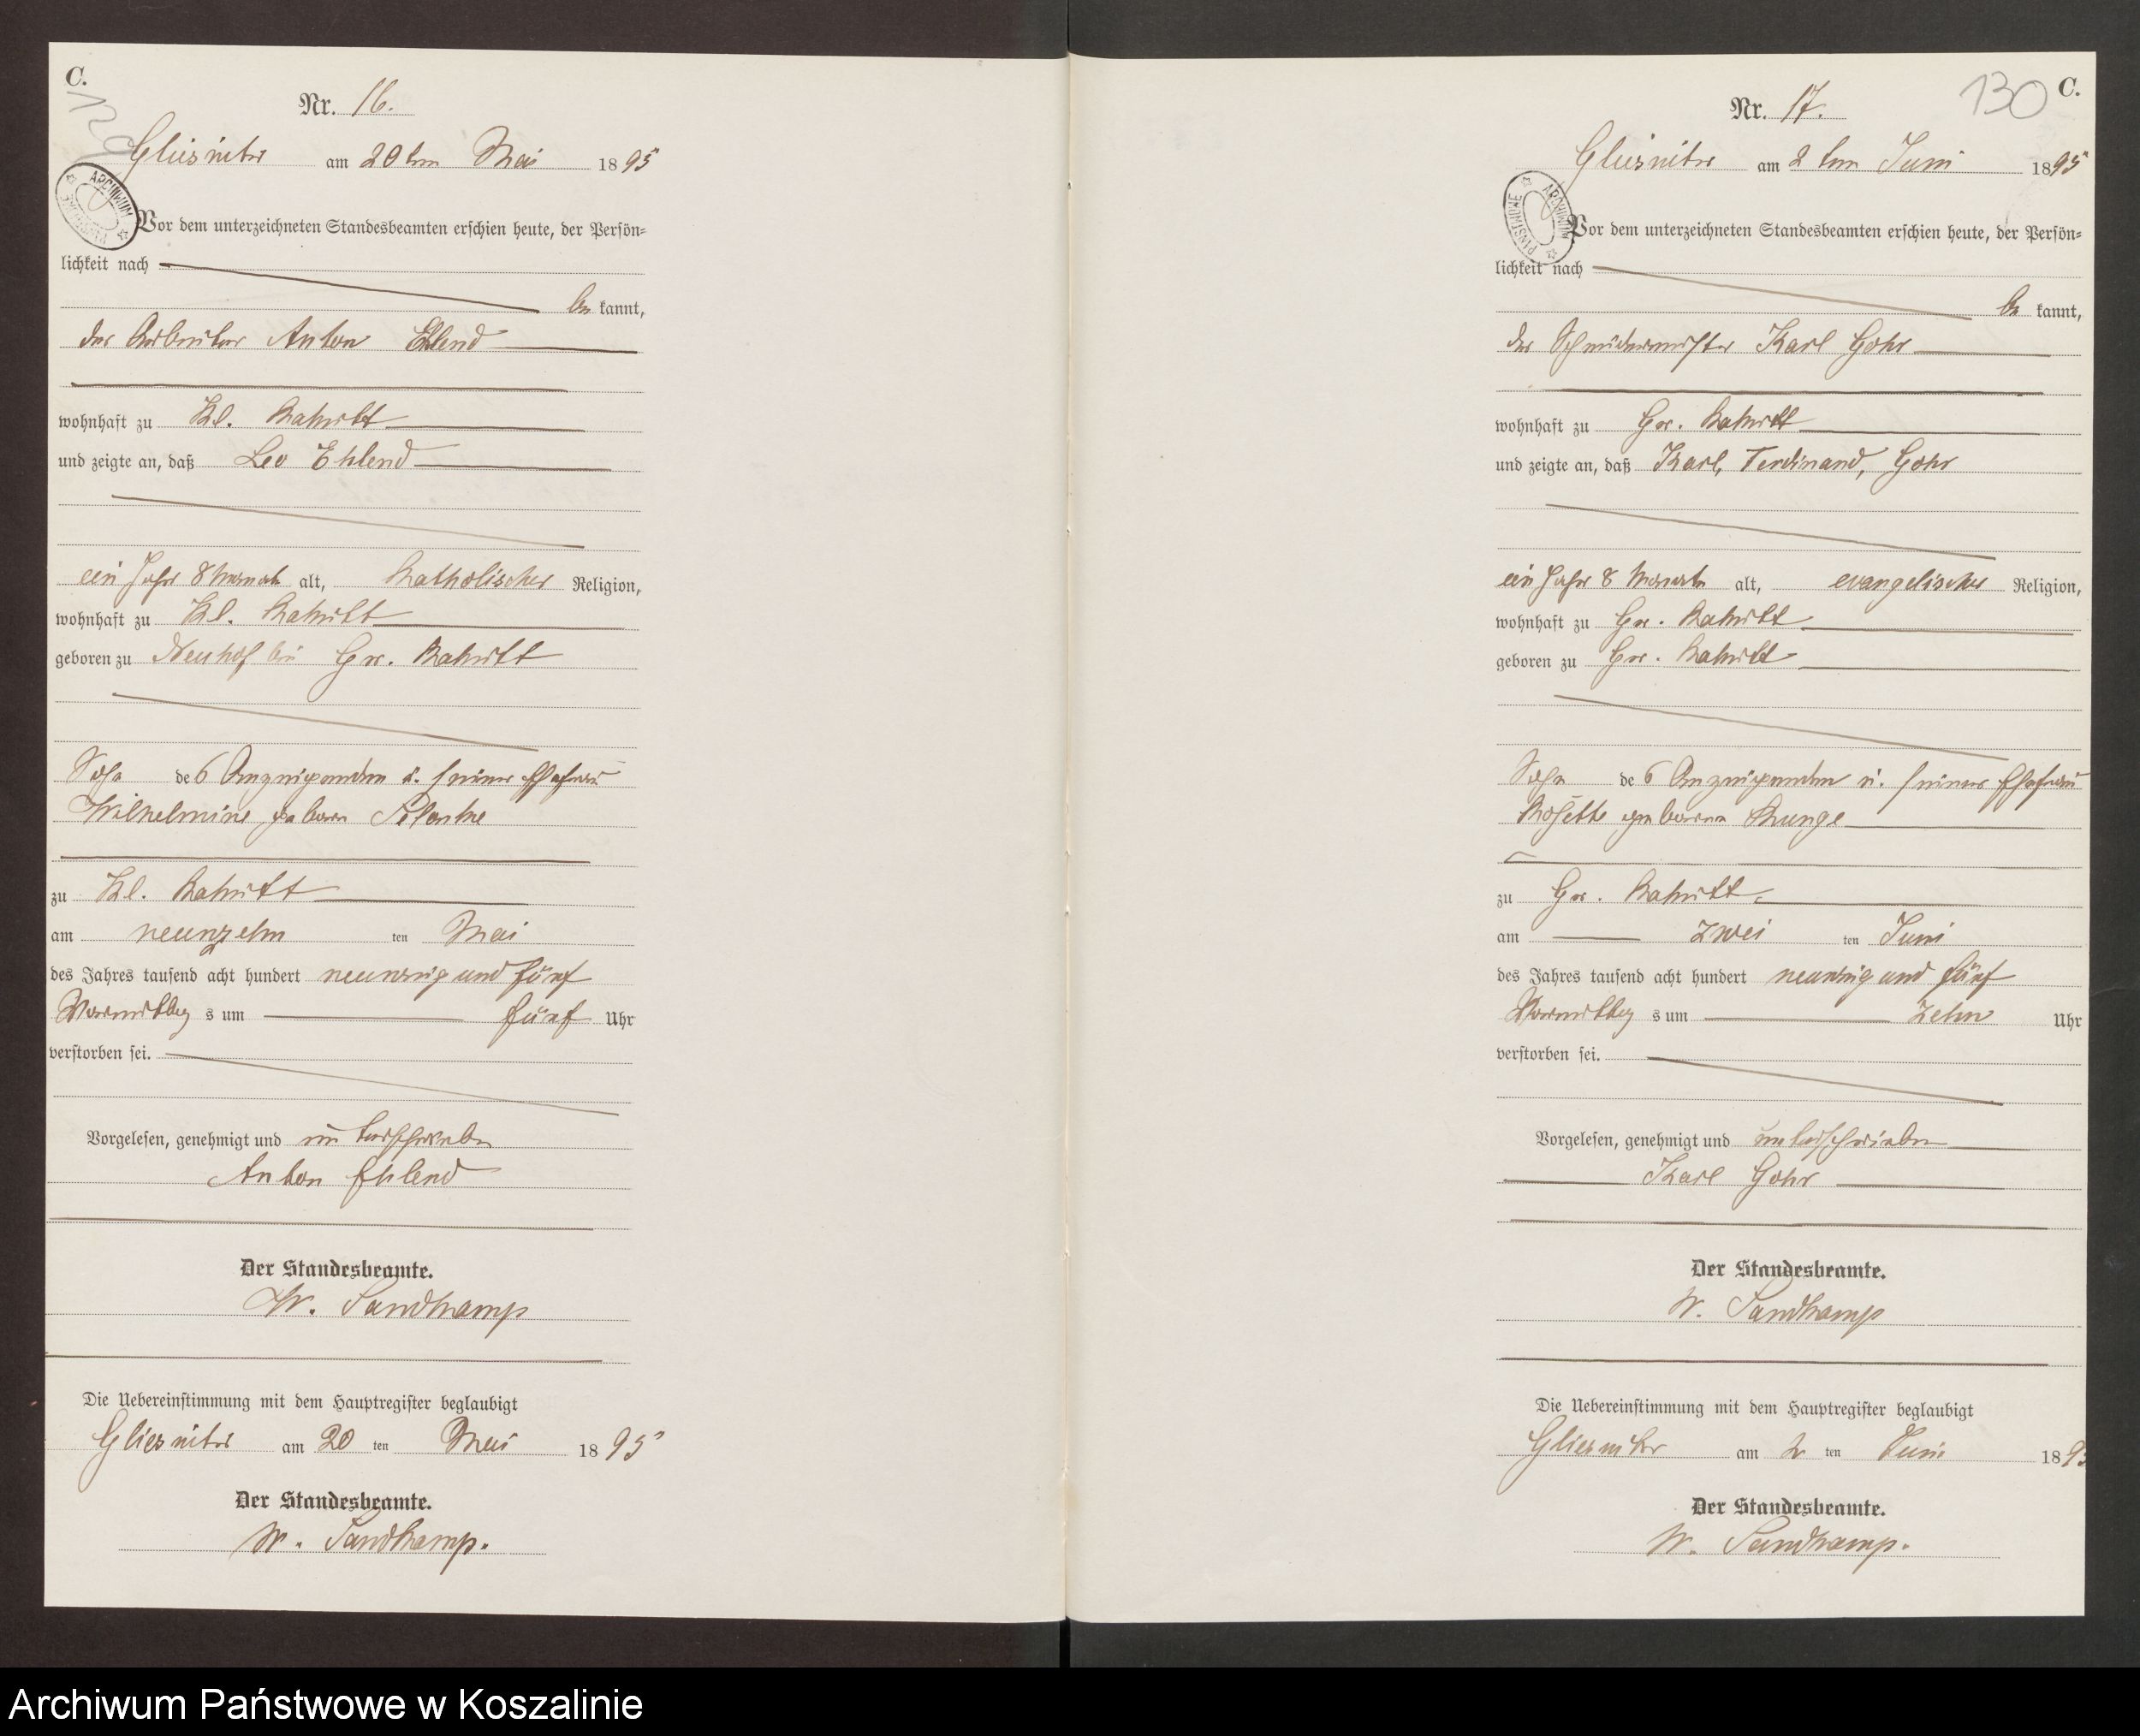 C.
129
Nr. 16.
Gliesnitz am 20ten Mai 1895
ARCHIWUM PAŃSTWOWE
Vor dem unterzeichneten Standesbeamten erschien heute, der Persön=
lichkeit nach
be kannt,
der Arbeiter Anton Ehlend
wohnhaft zu Kl. Rakitt
und zeigte an, daß Leo Ehlend
ein Jahr 8 Monate alt, katholischer Religion,
wohnhaft zu Kl. Rakitt
geboren zu Neuhof bei Gr. Rakitt
Sohn des Anzeigenden u. seiner Ehefrau
Wilhelmine geboren
zu Kl. Rakitt
am neunzehn ten Mai
des Jahres tausend acht hundert neunzig und fünf
Vormittags um fünf Uhr
verstorben sei.
Vorgelesen, genehmigt und unterschrieben
Anton Ehlend
Der Standesbeamte.
W. Sandkamp
Die Uebereinstimmung mit dem Hauptregister beglaubigt
Gliesnitz am 20 ten Mai 1895
Der Standesbeamte.
W. Sandkamp.
130 C.
Nr. 17.
Gliesnitz am 2ten Juni 1895
ARCHIWUM PAŃSTWOWE
Vor dem unterzeichneten Standesbeamten erschien heute, der Persön=
lichkeit nach
be kannt,
der Schneidermeister Karl Gohr
wohnhaft zu Gr. Rakitt
und zeigte an, daß Karl, Ferdinand, Gohr
ein Jahr 8 Monate alt, evangelischer Religion,
wohnhaft zu Gr. Rakitt
geboren zu Gr. Rakitt
Sohn des Anzeigenden u. seiner Ehefrau
Rosette geborene Runge
zu Gr. Rakitt
am zwei ten Juni
des Jahres tausend acht hundert neunzig und fünf
Vormittags um zehn Uhr
verstorben sei.
Vorgelesen, genehmigt und unterschrieben
Karl Gohr
Der Standesbeamte.
W. Sandkamp
Die Uebereinstimmung mit dem Hauptregister beglaubigt
Gliesnitz am 2 ten Juni 1895
Der Standesbeamte.
W. Sandkamp.
Archiwum Państwowe w Koszalinie